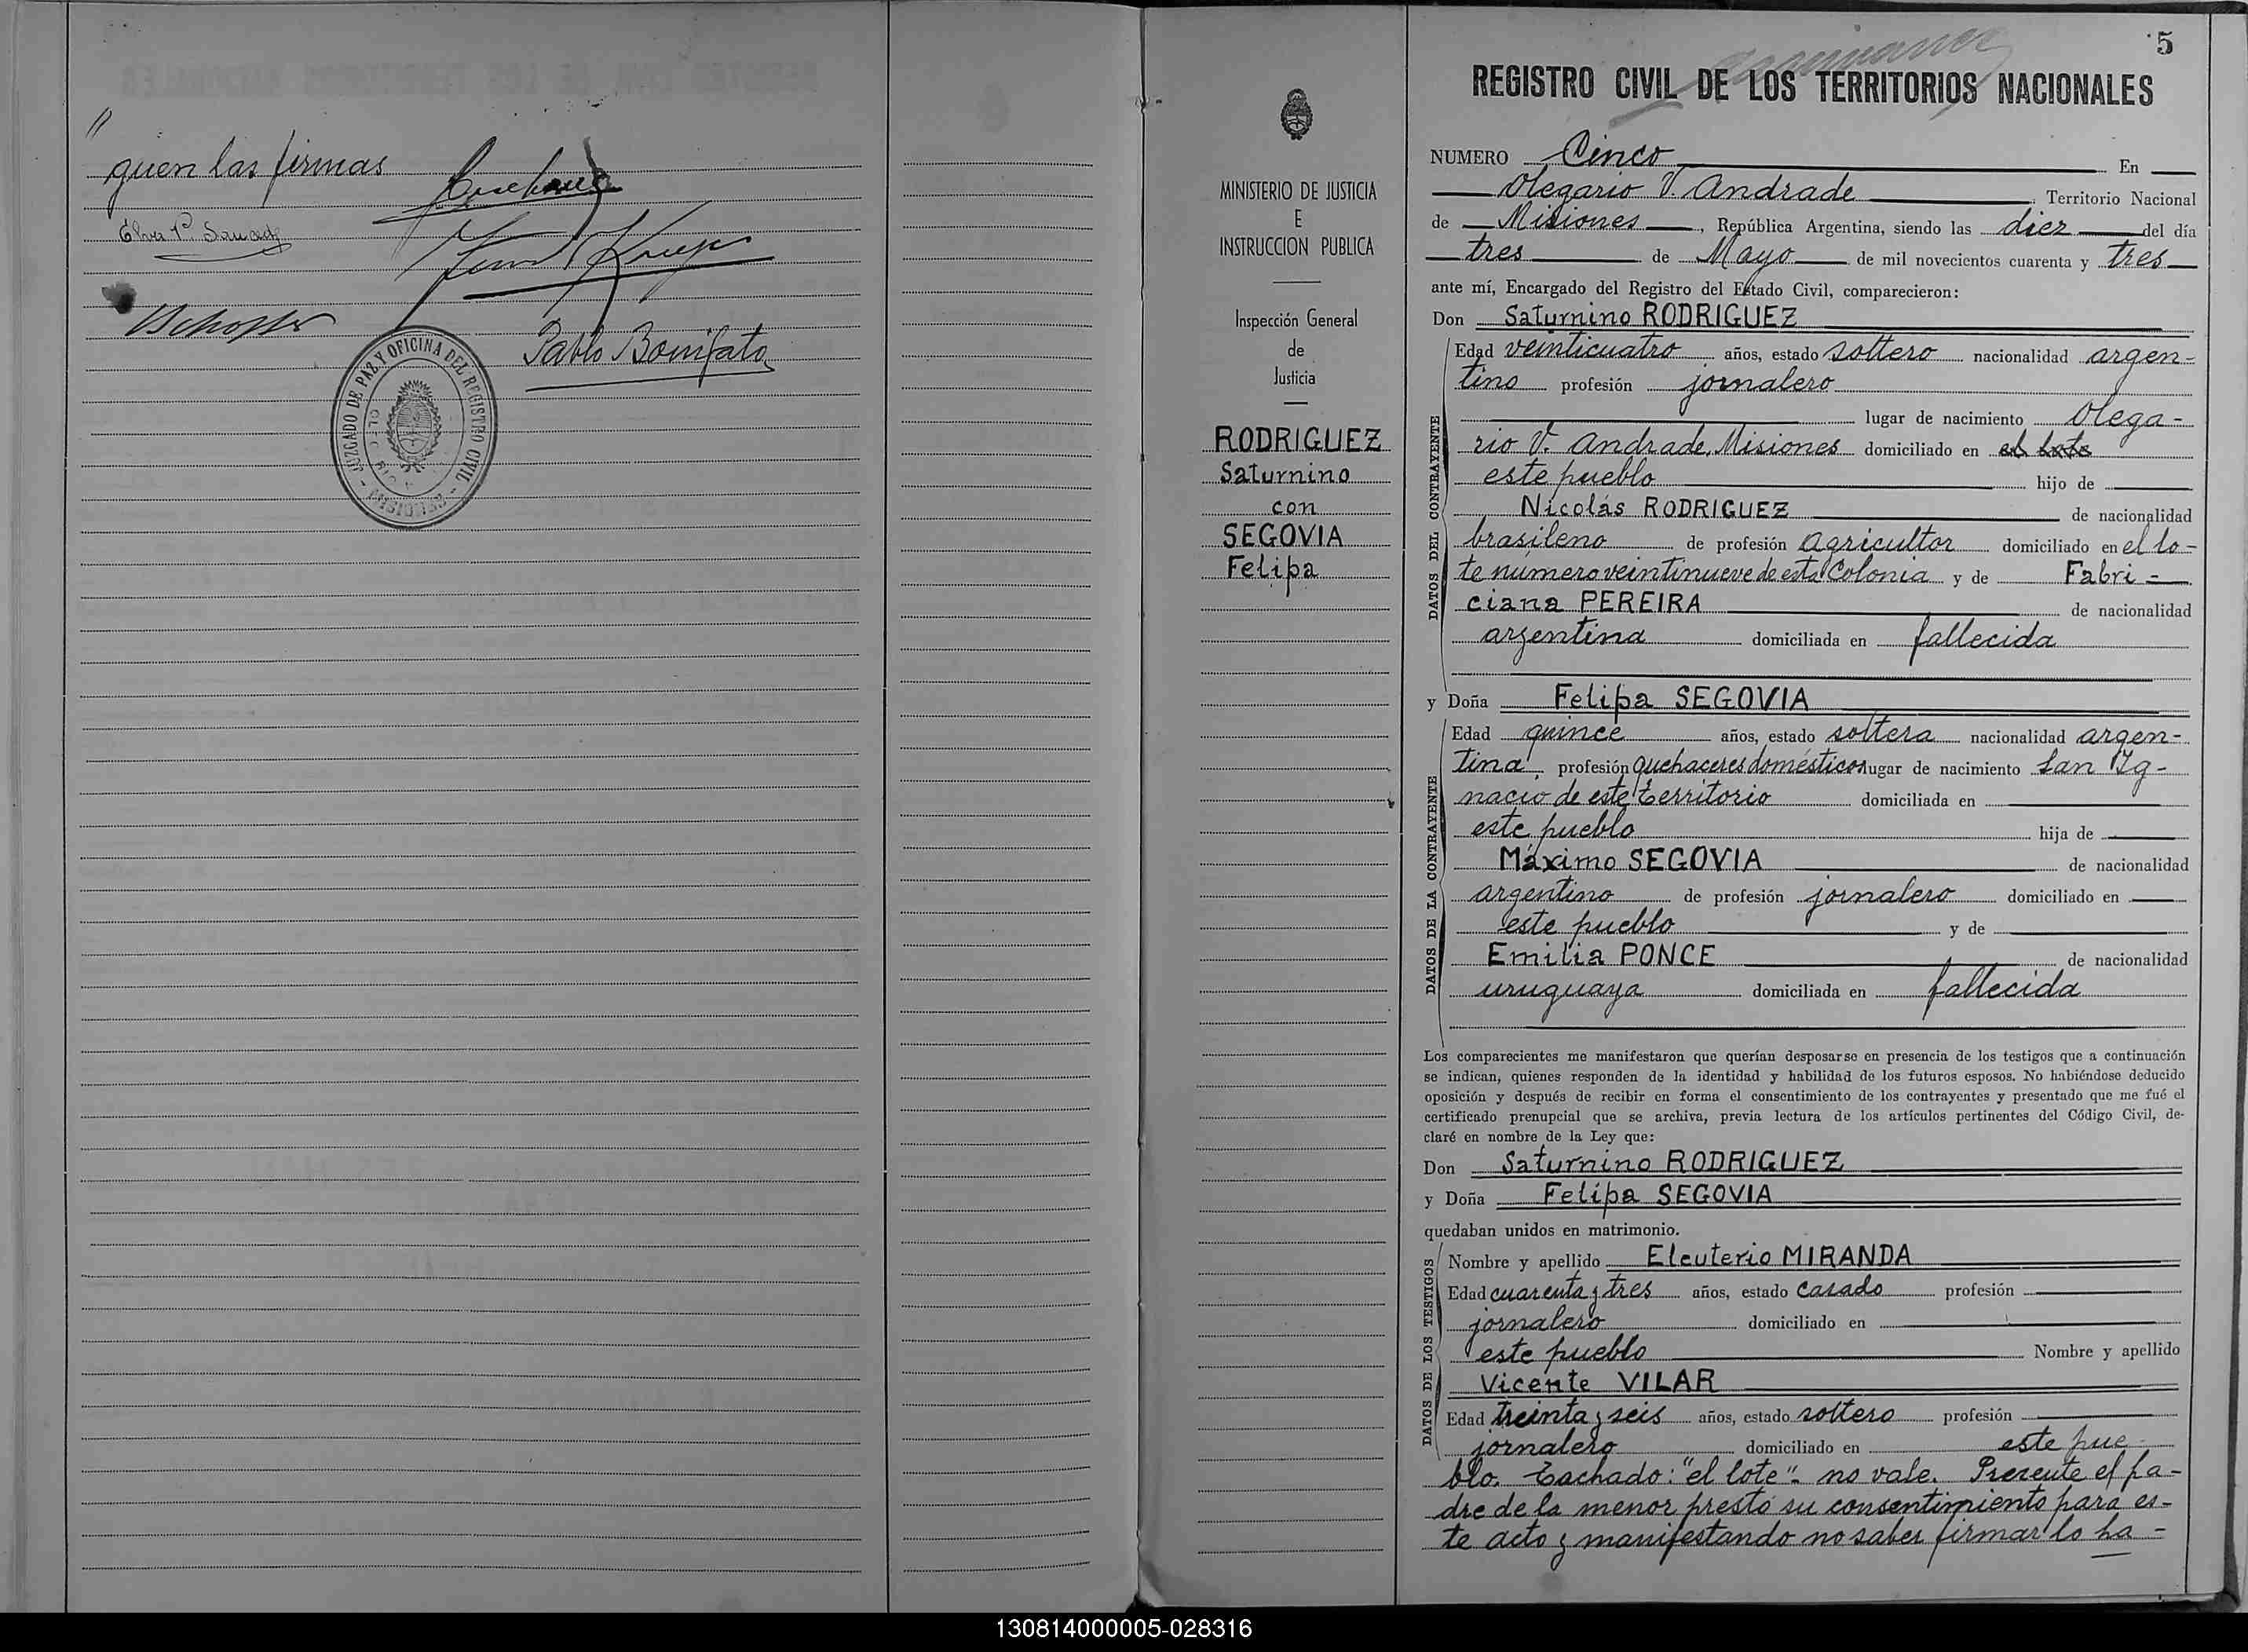 "
quen las firmas
Elva P. Sauced
Pablo Bonifato
JUZGADO DE PAZ Y OFICINA DEL REGISTRO CIVIL
- MISIONES -
MINISTERIO DE JUSTICIA
E
INSTRUCCION PUBLICA
Inspección General
de
Justicia
RODRIGUEZ
Saturnino
con
SEGOVIA
Felipa
5
REGISTRO CIVIL DE LOS TERRITORIOS NACIONALES
NUMERO Cinco En
Olegario V. Andrade Territorio Nacional
de Misiones, República Argentina, siendo las diez del día
tres de Mayo de mil novecientos cuarenta y tres
ante mí, Encargado del Registro del Estado Civil, comparecieron:
Don Saturnino RODRIGUEZ
Edad veinticuatro años, estado soltero nacionalidad argen-
tino profesión jornalero
lugar de nacimiento Olega-
rio V. Andrade, Misiones domiciliado en el lote
este pueblo hijo de
Nicolás RODRIGUEZ de nacionalidad
brasileno de profesión agricultor domiciliado en el lo-
te número veintinueve de esta Colonia y de Fabri-
ciana PEREIRA de nacionalidad
argentina domiciliada en fallecida
y Doña Felipa SEGOVIA
Edad quince años, estado soltera nacionalidad argen-
tina, profesión quehaceres domésticos lugar de nacimiento San Ig-
nacio de este territorio domiciliada en
este pueblo hija de
Máximo SEGOVIA de nacionalidad
argentino de profesión jornalero domiciliado en
este pueblo y de
Emilia PONCE de nacionalidad
uruguaya domiciliada en fallecida
Los comparecientes me manifestaron que querían desposarse en presencia de los testigos que a continuación
se indican, quienes responden de la identidad y habilidad de los futuros esposos. No habiéndose deducido
oposición y después de recibir en forma el consentimiento de los contrayentes y presentado que me fué el
certificado prenupcial que se archiva, previa lectura de los artículos pertinentes del Código Civil, de-
claré en nombre de la Ley que:
Don Saturnino RODRIGUEZ
y Doña Felipa SEGOVIA
quedaban unidos en matrimonio.
Nombre y apellido Eleuterio MIRANDA
Edad cuarenta y tres años, estado casado profesión
jornalero domiciliado en
este pueblo Nombre y apellido
Vicente VILAR
Edad treinta y seis años, estado soltero profesión
jornalero domiciliado en este pue-
blo. Tachado: "el lote". no vale. Presente el pa-
dre de la menor prestó su consentimiento para es-
te acto y manifestando no saber firmar lo ha-
DATOS DEL CONTRAYENTE
DATOS DE LA CONTRAYENTE
DATOS DE LOS TESTIGOS
130814000005-028316